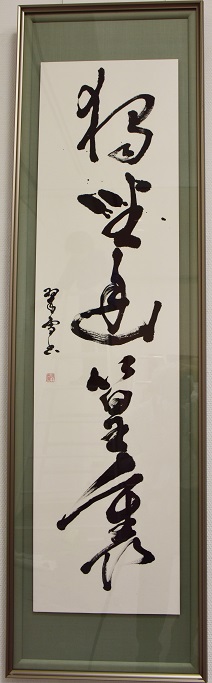 獨坐幽篁裏